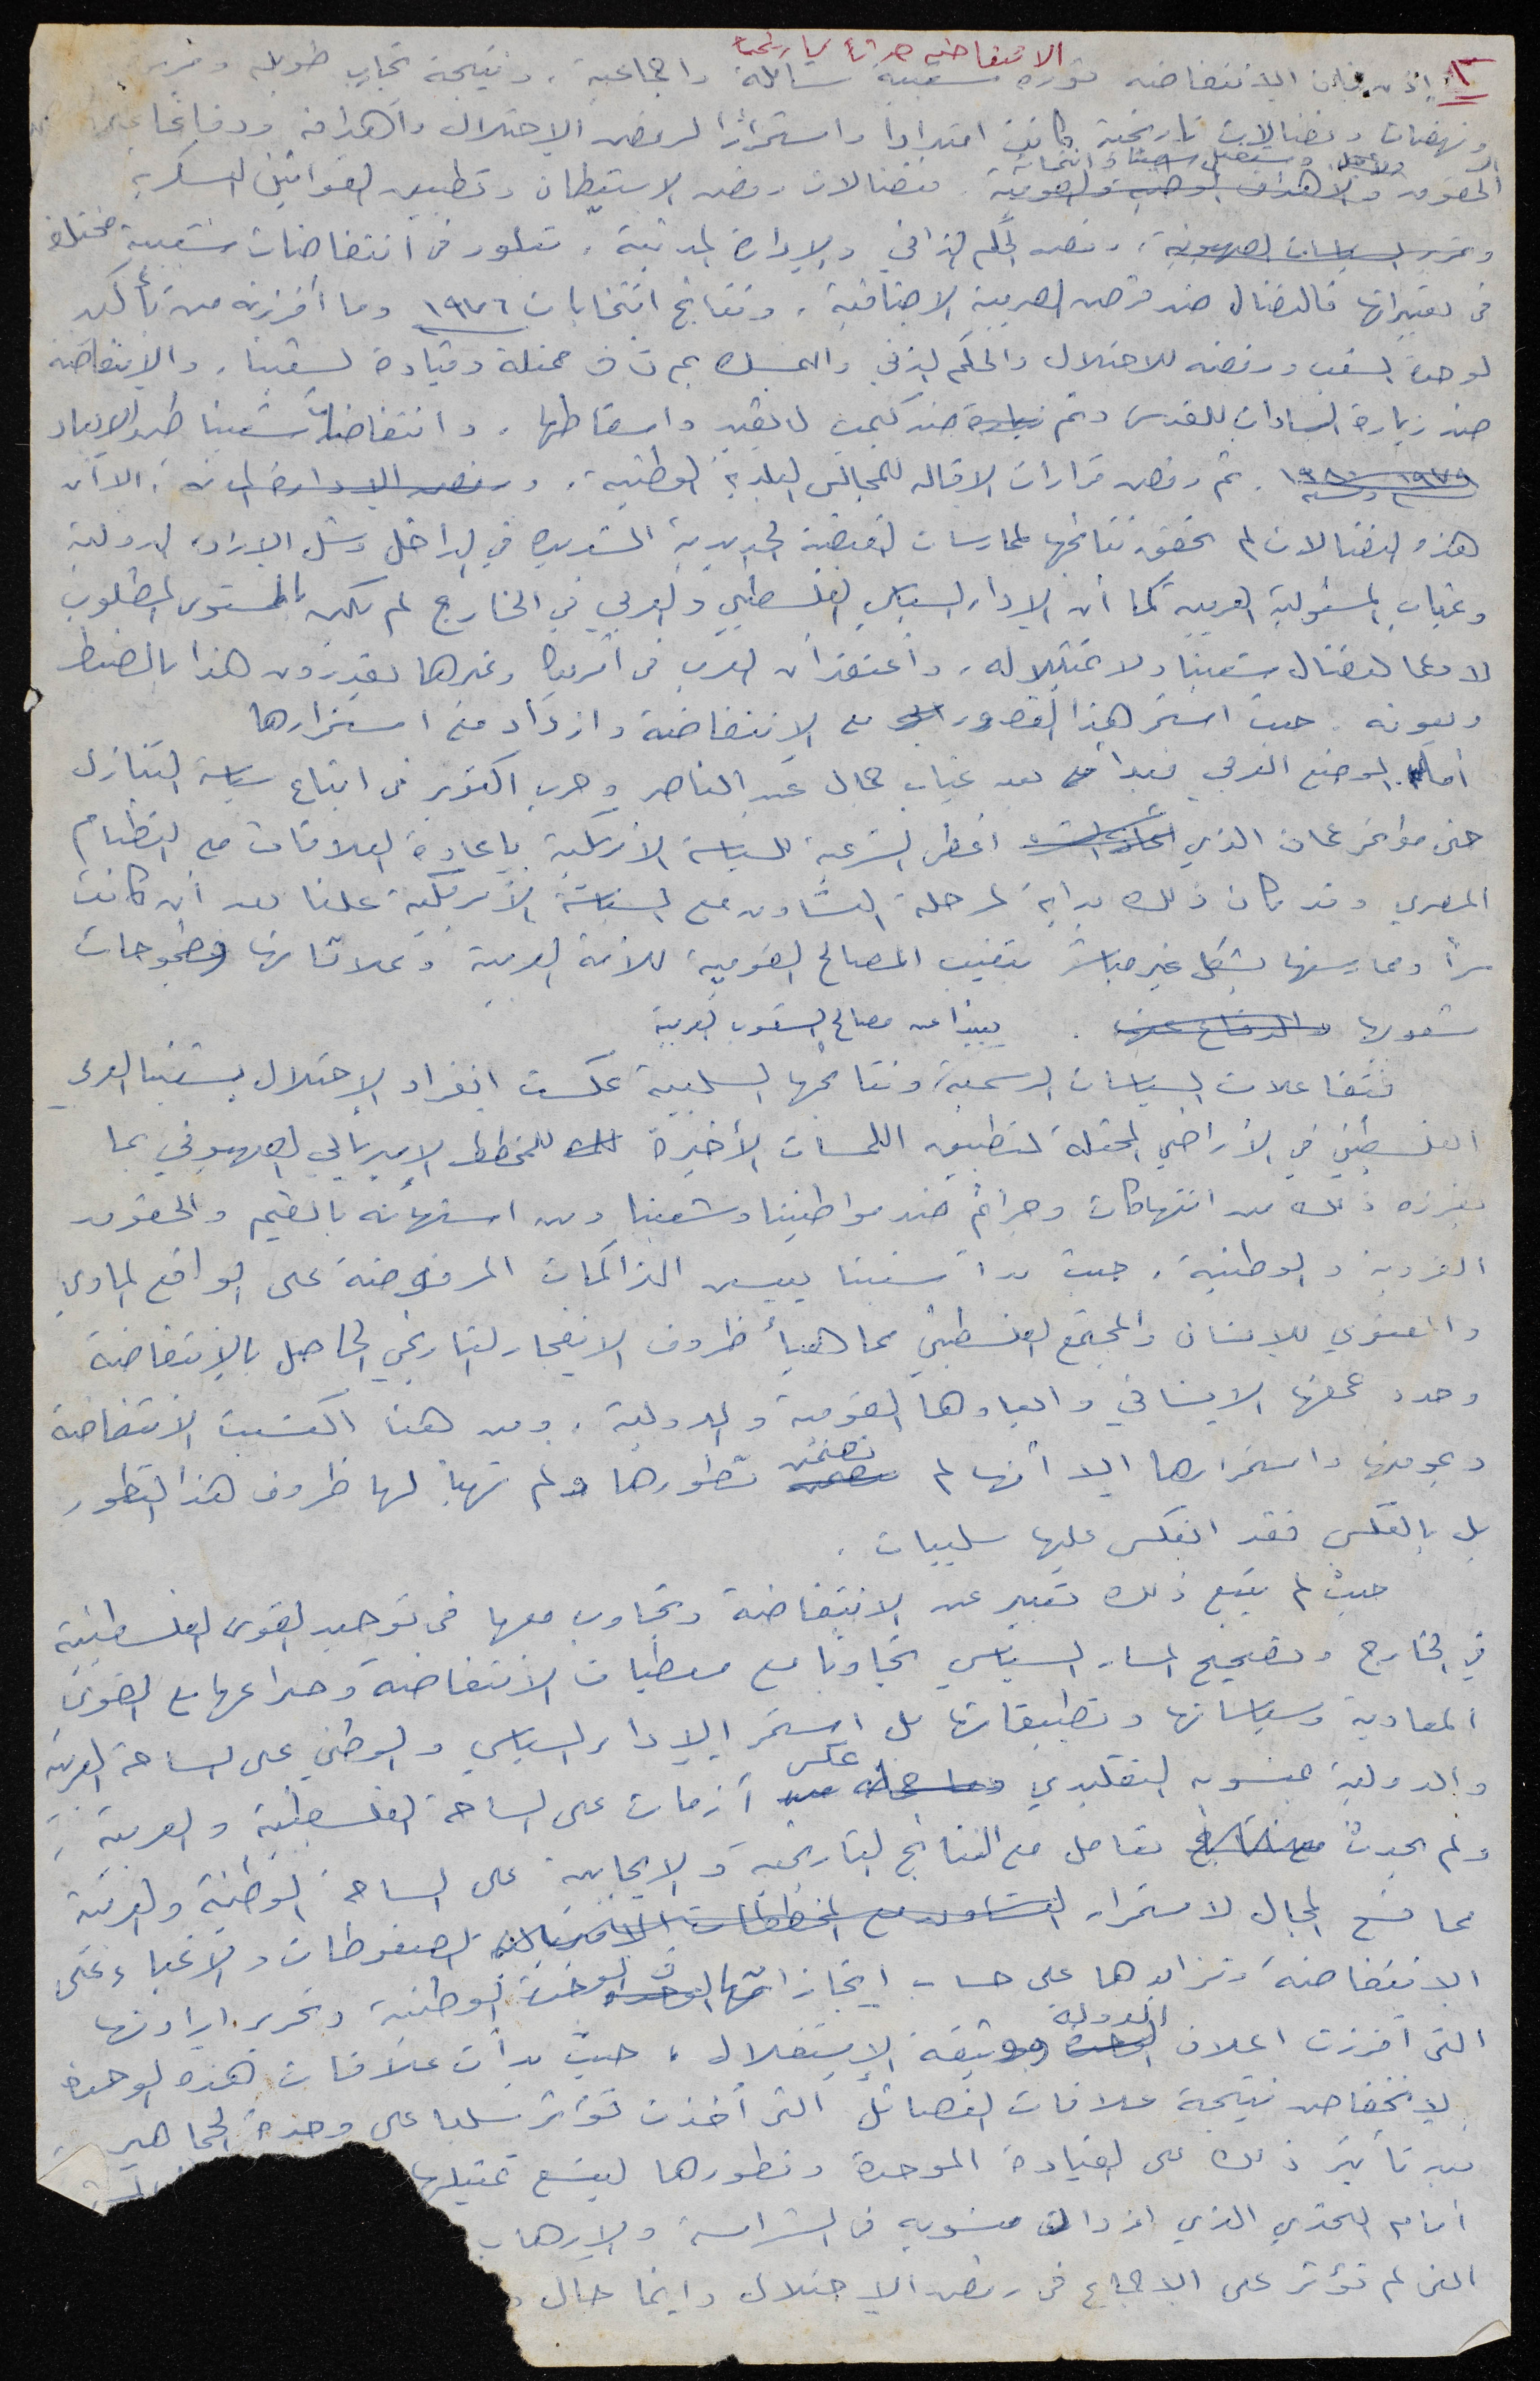 الانتفاضة حدثا تاريخيا
٢. إذن فإن الانتفاضة ثورة شعبية شاملة واجماعية، ونتيجة تجارب طويلة
ونهضات ونضالات تاريخية كانت امتدادا واستمرارا لرفض الاحتلال وأهدافه ودفاعا عن
ولأجل مستقبل شعبنا وانتمائه
الحقوق والأهداف الوطنية والقومية فنضالات رفض الاستيطان وتطبيق القوانين العسكرية
وتمرير السياسات الصهيونية، ورفض الحكم الذاتي والإدارة المدنية، تبلور في انتفاضات شعبية مختلفة
في تعبيراتها فالنضال ضد فرض الضريبة الاضافية، ونتائج انتخابات ١٩٧٦ وما أفرزته من تأكيد
لوحدة الشعب ورفضه للاحتلال والحكم الذاتي والتمسك بم ت ف ممثلة وقيادة لشعبنا، والانتفاضة
ضد زيارة السادات للقدس وتم ضد كامب ديفيد واسقاطها، وانتفاضات شعبنا ضد الابعاد
١٩٧٩، ثم رفض قرارات الاقالة للمجالس البلدية الوطنية، ورفض الادارة المدنية، الا أن
هذه النضالات لم تحقق نتائجها لممارسات القبضة الحديدية الشديدة في الداخل وشل الارادة الدولية
وغياب المسئولية العربية كما أن الاداء السياسي الفلسطيني والعربي في الخارج لم يكن بالمستوى المطلوب
لا دعما لنضال شعبنا ولا تمثيلا له، وأعتقد أن العرب في أمريكا وغيرها يقدرون هذا بالضبط
ويعونه. حيث استمر هذا القصور مع الانتفاضة وازداد مع استمرارها
أما الوضع العربي فبدأ بعد غياب جمال عبد الناصر وحرب اكتوبر في اتباع سياسة التنازل
حتى مؤتمر عمان الذي أعطى الشرعية للسياسة الأمريكية بإعادة العلاقات مع النظام
المصري وقد كان ذلك بداية لمرحلة التساوق مع السياسة الأمريكية علنا بعد أن كانت
سرا وممارستها بشكل غير مباشر بتغييب المصالح القومية للأمة العربية وعلاقاتها وطموحات
شعوبها والدفاع عنها. بعيدا عن مصالح الشعوب العربية
فتفاعلات السياسات الرسمية، ونتائجها السلبية عكست انفراد الاحتلال بشعبنا العربي
الفلسطيني في الأراضي المحتلة لتطبيق اللمسات الأخيرة للمخطط الإمبريالي الصهيوني بما
يفرزه ذلك من انتهاكات وجرائم ضد مواطنينا وشعبنا ومن استهانة بالقيم والحقوق
الفردية والوطنية، حيث بدأ شعبنا يعيش التراكمات المرفوضة على الواقع المادي
والمعنوي للانسان والمجتمع الفلسطيني مما هيأ ظروف الانفجار التاريخي الحاصل بالانتفاضة
وحدد عمقها الانساني وابعادها القومية والدولية، ومن هنا اكتسبت الانتفاضة
ديمومتها واستمرارها الا أنها لم تضمن تطورها ولم تهيأ لها ظروف هذا التطور
بل بالعكس فقد انعكس عليها سلبيات.
حيث لم يتبع ذلك تعبير عن الانتفاضة وتجاوب معها في توحيد القوى الفلسطينية
في الخارج وتصحيح المسار السياسي تجاوبا مع معطيات الانتفاضة وصراعها مع القوى
المعادية وسياساتها وتطبيقاتها بل استمر الاداء السياسي والوطني على الساحة العربية
والدولية بمنسوبه التقليدي عكس أزمات على الساحة الفلسطينية والعربية
ولم يحدث تفاعل مع النتائج التاريخية والايجابية على الساحة الوطنية والعربية
مما فتح المجال لاستمرار التساوق مع المخططات الضغوطات والاعباء على
الانتفاضة وتزايدها على حساب انجازاتها الوطنية وتحرير ارادتها
التي أفرزت اعلان الدولة وثيقة الاستقلال، حيث بدأت علاقات هذه الوحدة
لانخفاض نتيجة علاقات الفصائل التي أخذت تؤثر سلبا على وحدة الجماهير
من تأثير ذلك على القيادة الموحدة وتطورها ليتسع تمثيلها
أمام التحدي الذي ازداد منسوبه في الشراسة والارهاب
التي لم تؤثر على الاجماع في رفض الاحتلال وانما حال